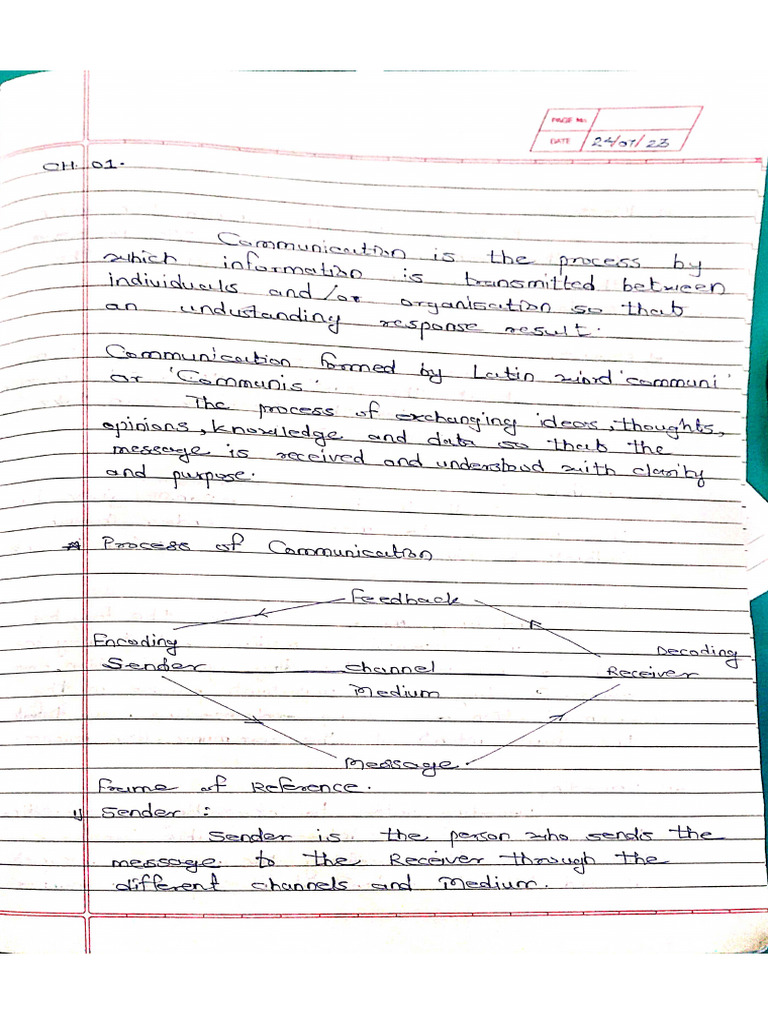 PAGE No.
DATE 24/01/23
CH. 01.
Communication is the process by
which information is transmitted between
individuals and/or organisation so that
an undustanding response result.
Communication formed by Latin word 'communi'
or 'Communis'
The process of exchanging ideas, thoughts,
opinions, knowledge and data so that the
message is received and understood with clarity
and purpose.
* Process of Communication
Feedback
Encoding Decoding
Sender Channel Receiver
Medium
Message.
Frame of Reference.
1) Sender :
Sender is the person who sends the
message to the Receiver through the
different channels and Medium.